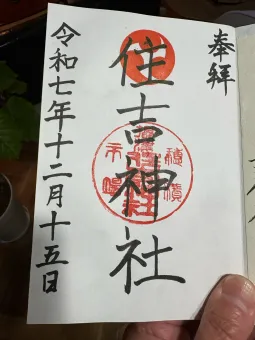 奉拝
住吉神社
令和七年十二月十五日